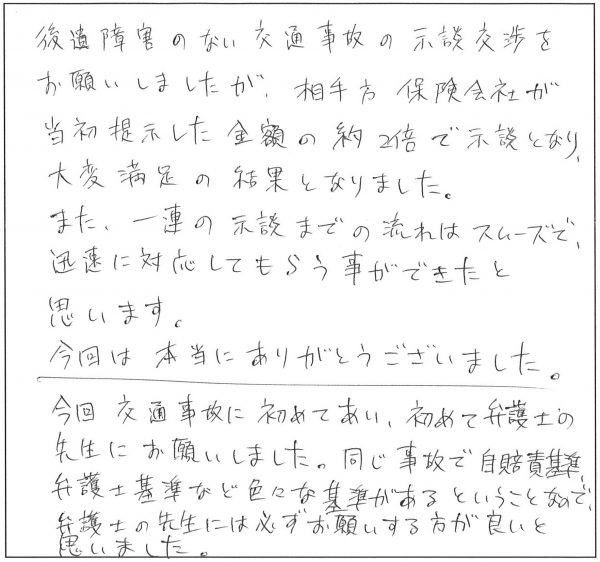 後遺障害のない交通事故の示談交渉を
お願いしましたが、相手方 保険会社が
当初提示した金額の約2倍で示談となり、
大変満足の結果となりました。
また、一連の示談までの流れはスムーズで、
迅速に対応してもらう事ができたと
思います。
今回は本当にありがとうございました。
今回 交通事故に初めてあい、初めて弁護士の
先生にお願いしました。同じ事故で自賠責基準、
弁護士基準など色々な基準があるということなので、
弁護士の先生には必ずお願いする方が良いと
思いました。